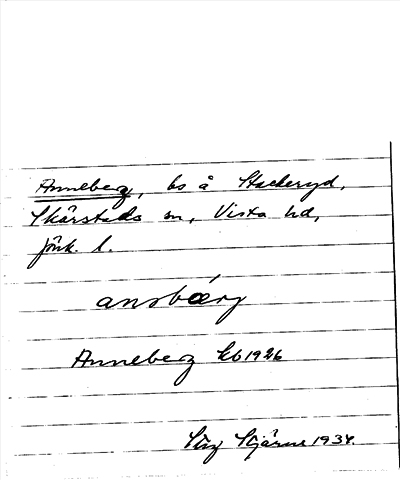 Anneberg, bs å Stackeryd,
Skärstads sn, Vista hd,
Jönk. l.
ansbærj
Anneberg kb 1926
Stig Stjärne 1934.